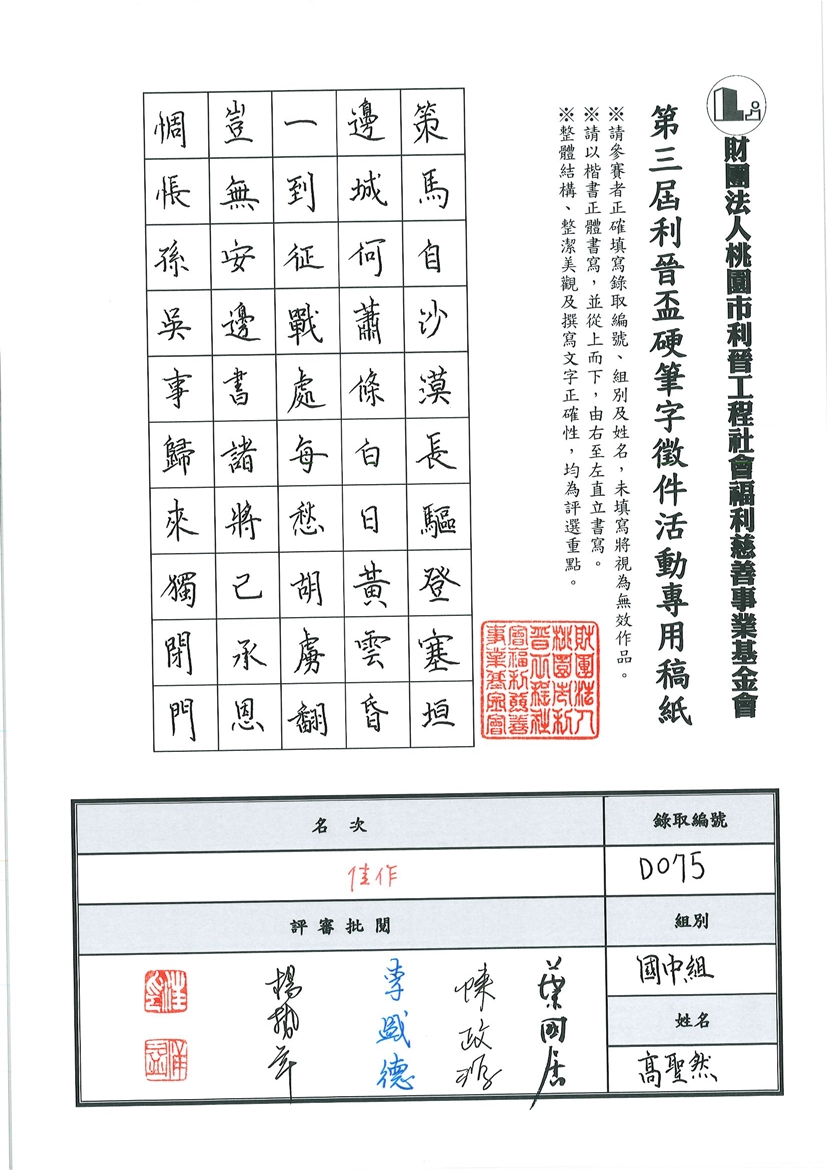 財團法人桃園市利晉工程社會福利慈善事業基金會
第三屆利晉盃硬筆字徵件活動專用稿紙
※請參賽者正確填寫錄取編號、組別及姓名，未填寫將視為無效作品。
※請以楷書正體書寫，並從上而下，由右至左直立書寫。
※整體結構、整潔美觀及撰寫文字正確性，均為評選重點。
策馬自沙漠長驅登塞垣
邊城何蕭條白日黃雲昏
一到征戰處每愁胡虜翻
豈無安邊書諸將已承恩
惆悵孫吳事歸來獨閉門
財團法人
桃園市利
晉工程社
會福利慈善
事業基金會
錄取編號
D075
組別
國中組
姓名
高聖然
名次
佳作
評審批閱
葉國居
陳政源
李盛德